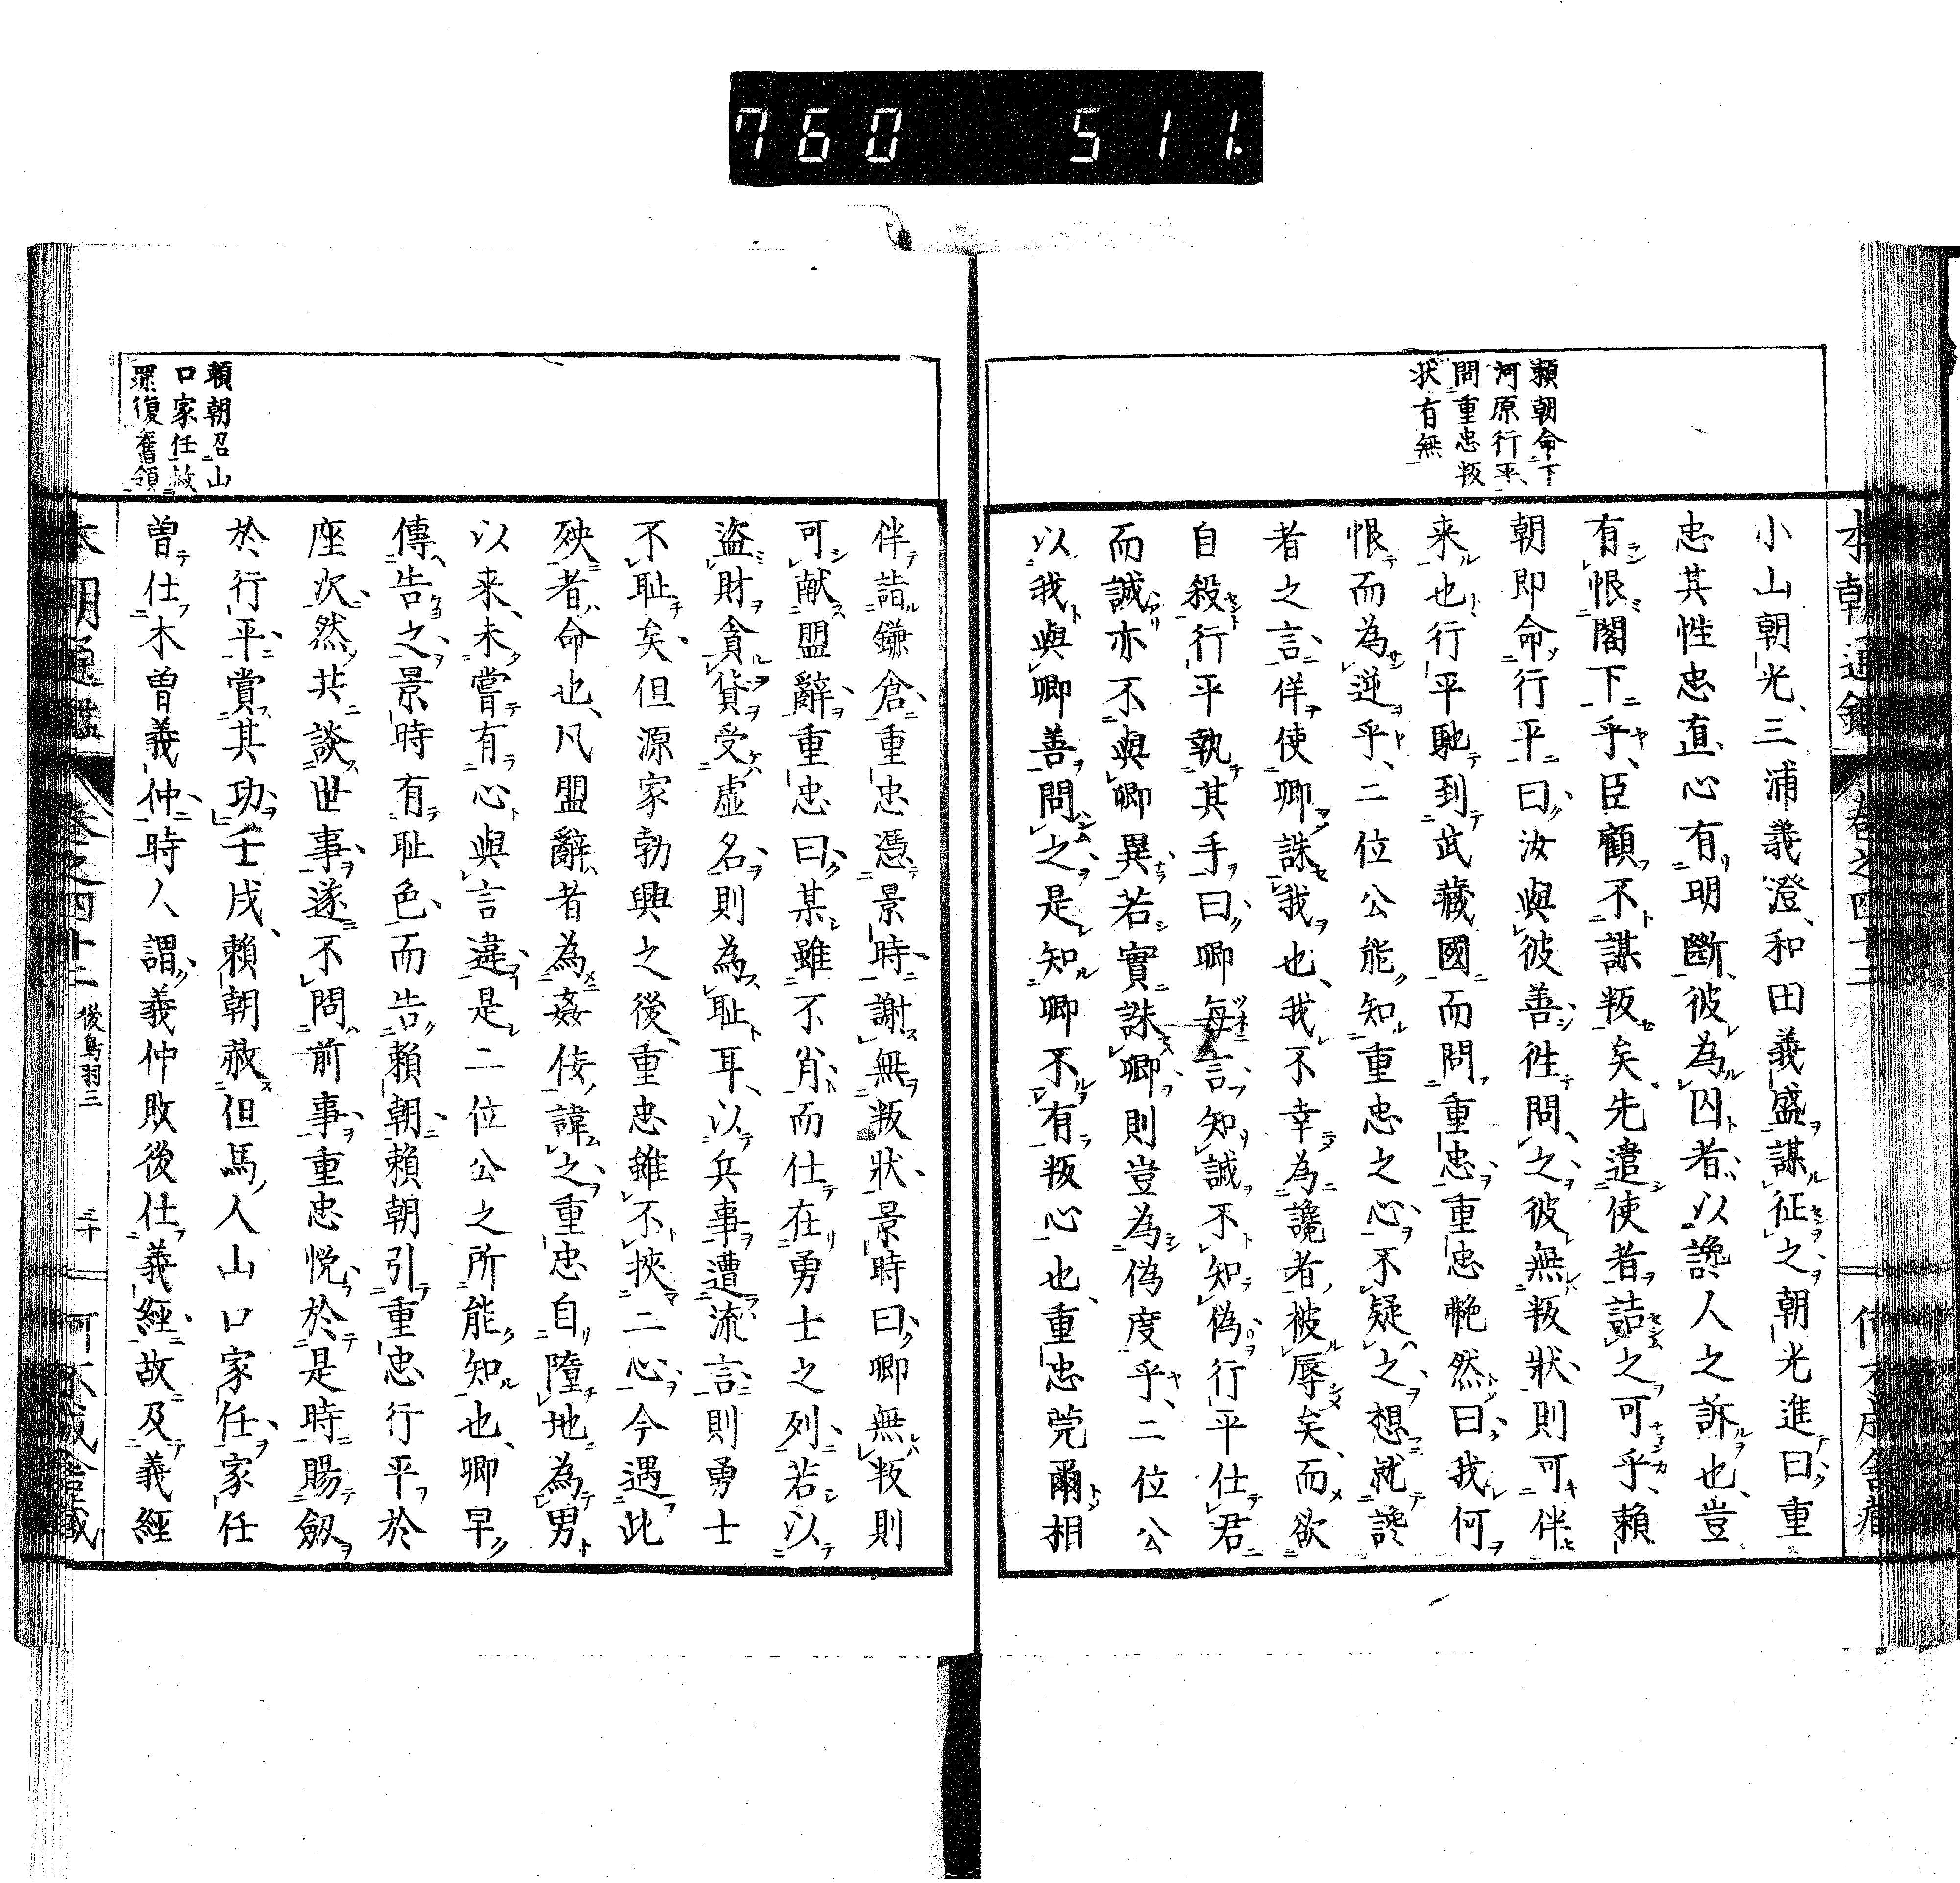 760 511.
頼朝命下
河原行平
問重忠叛
状有無
小山朝光三浦義澄和田義盛謀征之朝光進曰重
忠其性忠直心有明断彼為囚者以讒人之訴也豈
有恨閣下乎臣顧不謀叛矣先遣使者詰之可乎頼
朝即命行平曰汝與彼善徃問之彼無叛状則可伴
来也行平馳到武藏國而問重忠重忠艴然曰我何
恨而為逆乎二位公能知重忠之心不疑之想就讒
者之言佯使卿誅我也我不幸為讒者被辱矣而欲
自殺行平執其手曰卿毎言知誠不知偽行平仕君
而誠亦不與卿異若實誅卿則豈為偽度乎二位公
以我與卿善問之是知卿不有叛心也重忠莞爾相
伴詣鎌倉重忠憑景時謝無叛状景時曰卿無叛則
可献盟辭重忠曰某雖不肖而仕在勇士之列若以
盗財貪貨受虚名則為耻耳以兵事遭流言則勇士
不耻矣但源家勃興之後重忠雖不挾二心今遇此
殃者命也凡盟辭者為姦佞諱之重忠自墮地為男
以来未嘗有心與言違是二位公之所能知也卿早
傳告之景時有耻色而告頼朝頼朝引重忠行平於
座次然共談世事遂不問前事重忠悦於是時賜劔
於行平賞其功壬戌頼朝赦但馬人山口家任家任
曽仕木曽義仲時人謂義仲敗後仕義經故及義經
頼朝召山
口家任赦
罪復舊領
本朝通鑑 巻之四十二 後鳥羽三 三十